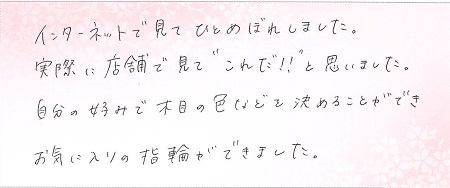 インターネットで見てひとめぼれしました。
実際に店舗で見て"これだ!!"と思いました。
自分の好みで木目の色などを決めることができ
お気に入りの指輪ができました。